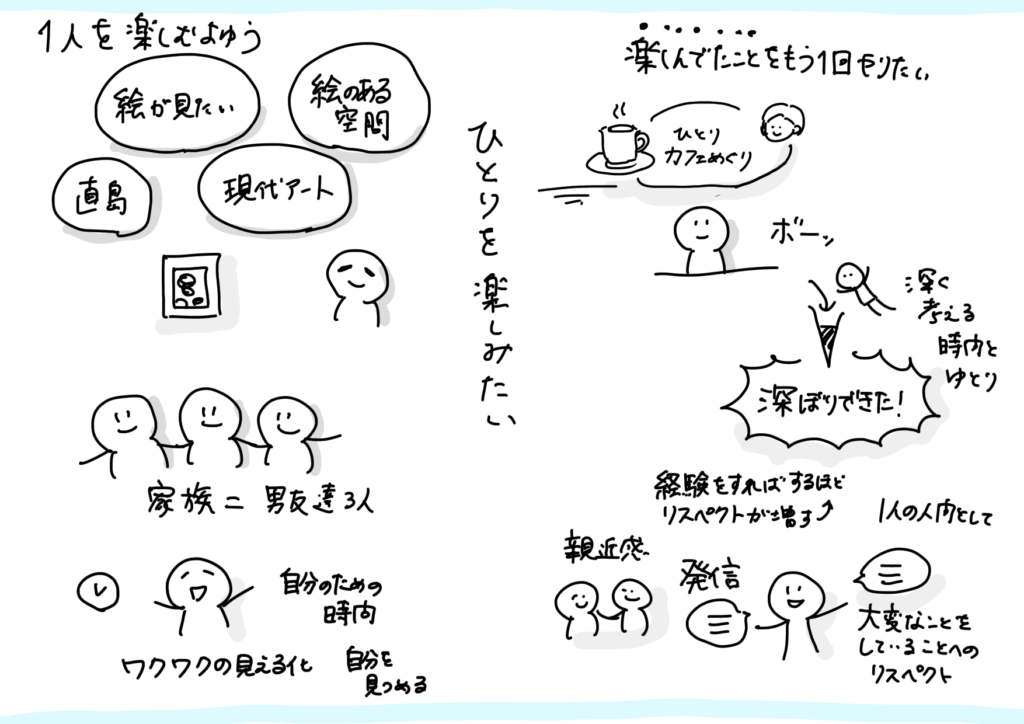 1人を楽しむよゆう
絵が見たい
絵のある
空間
直島
現代アート
家族ニ 男友達3人
自分のための
時間
ワクワクの見える化
自分を
見つめる
ひとりを楽しみたい
楽しんでたことをもう1回やりたい
ひとり
カフェめぐり
ボーッ
深く
考える
時間と
ゆとり
深ぼりできた!
経験をすればするほど
リスペクトが増す
1人の人間として
親近感
発信
大変なことを
していることへの
リスペクト